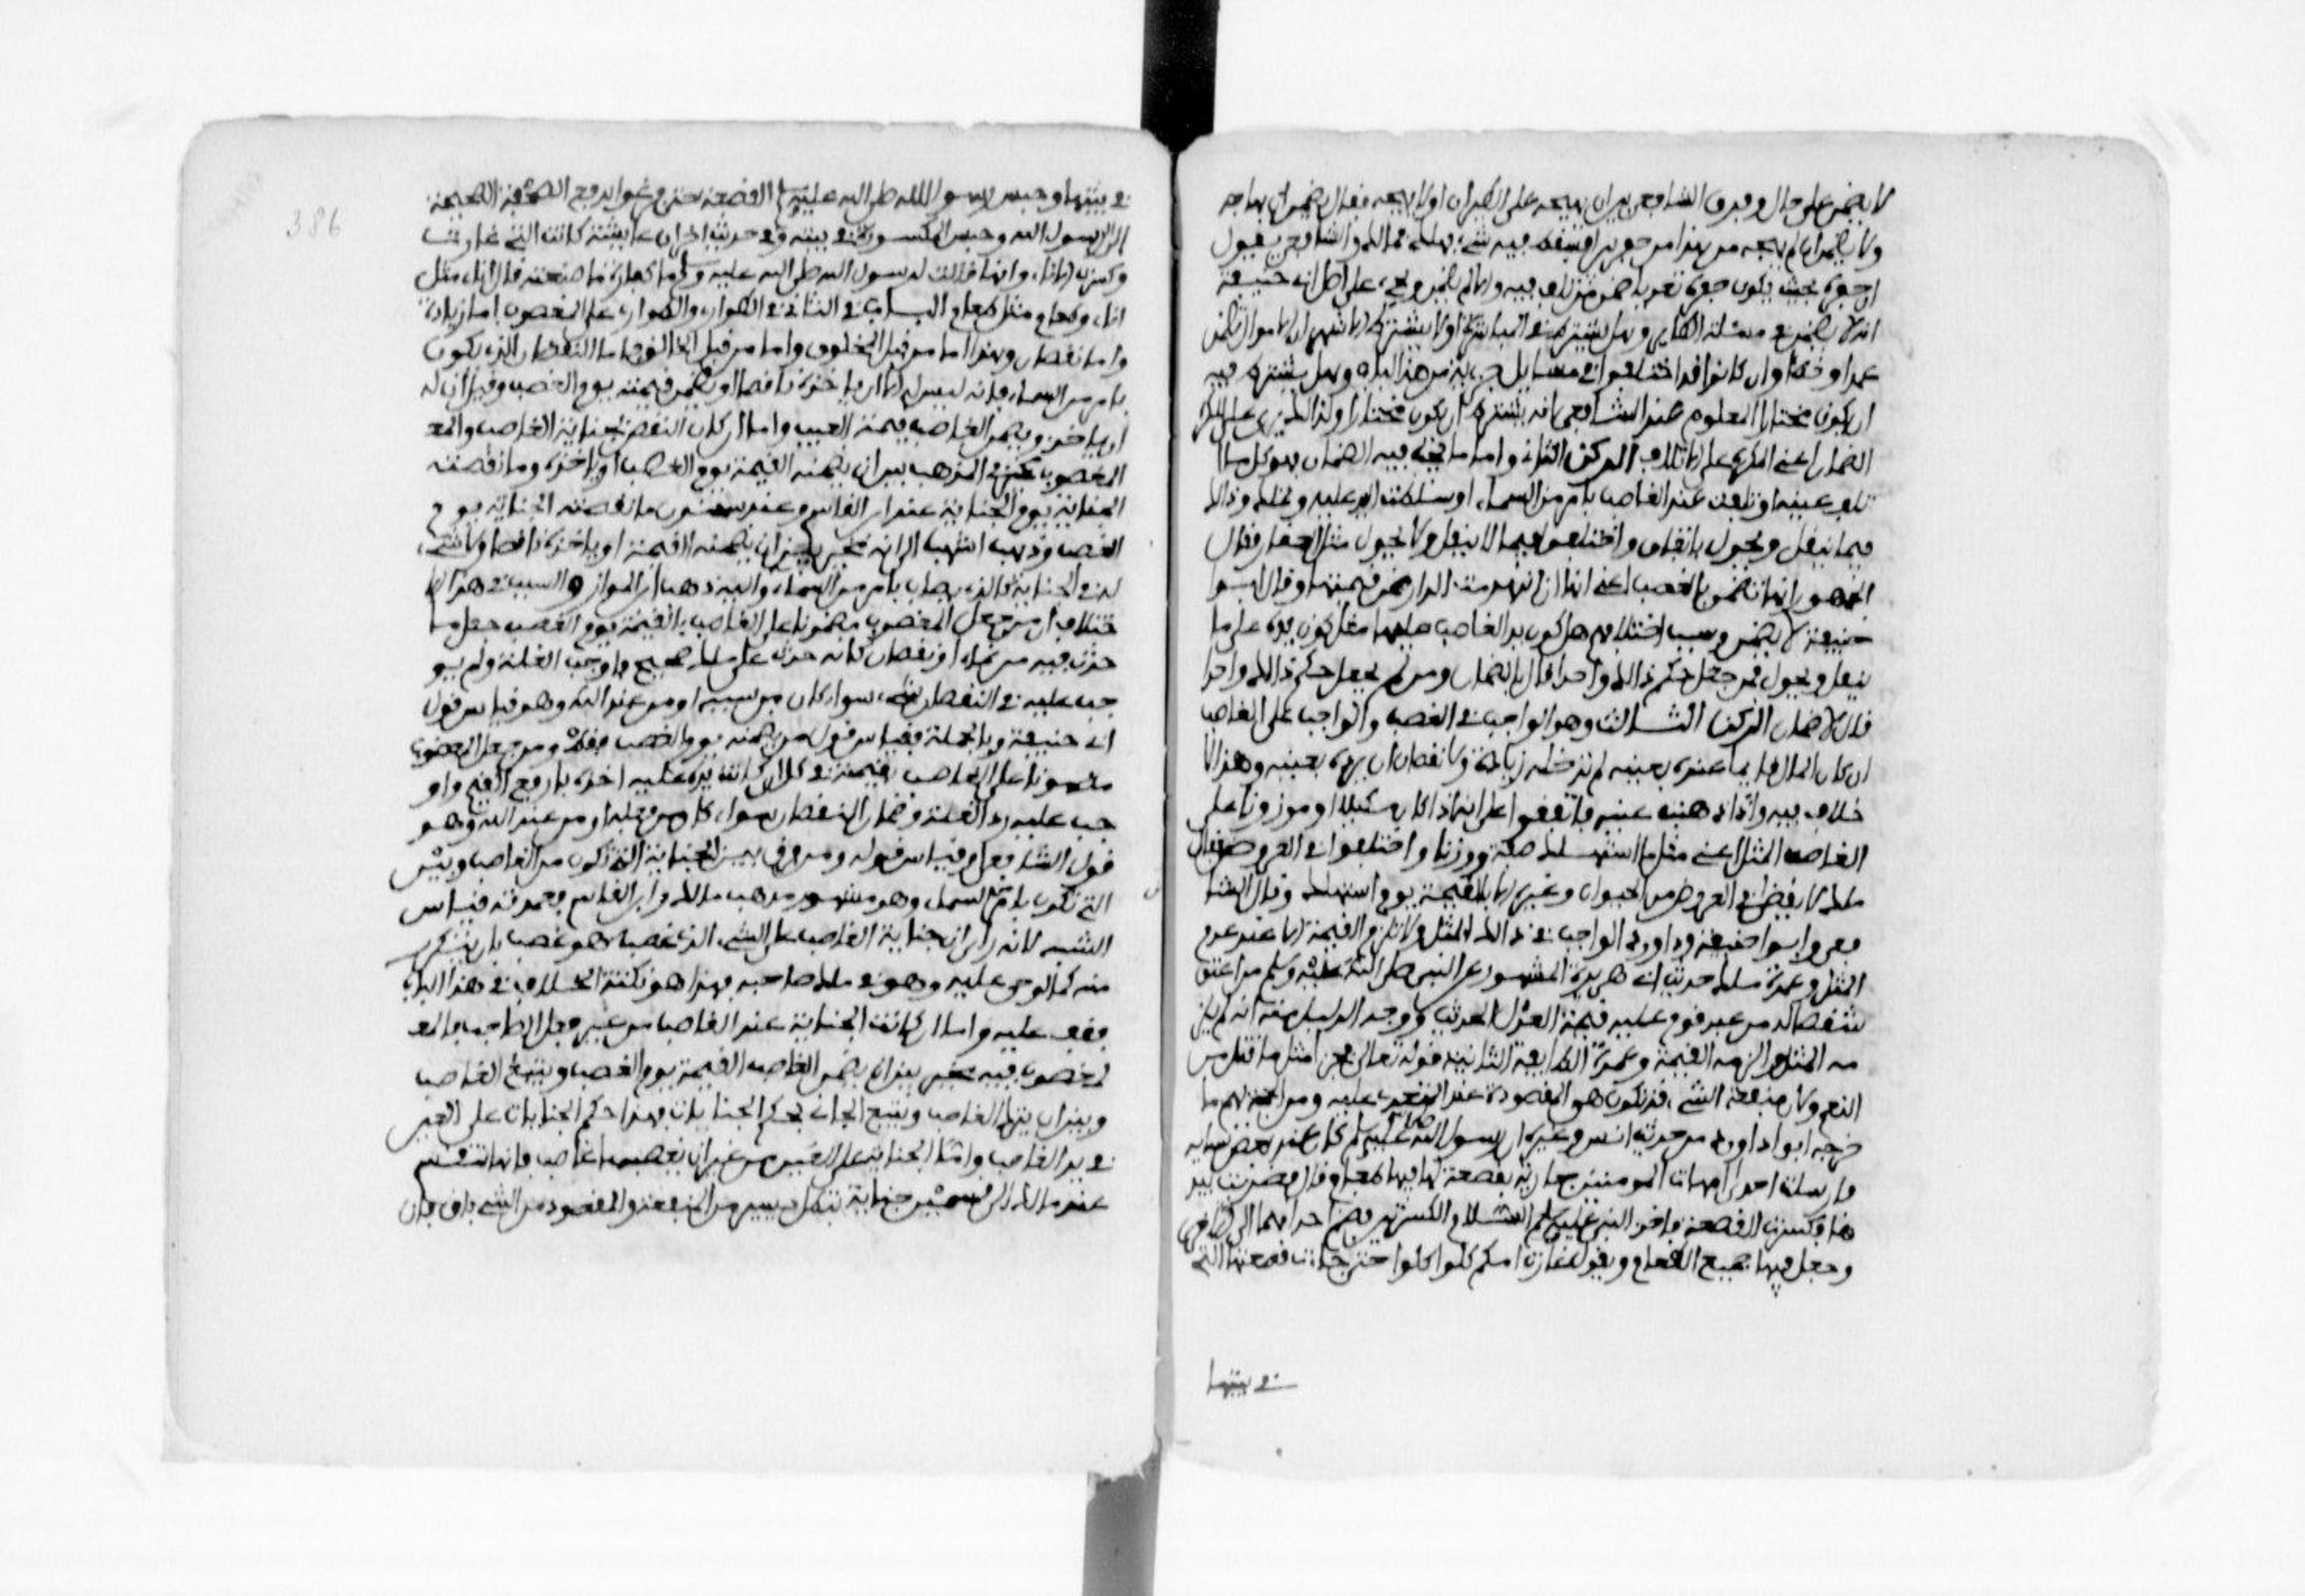 لا يضمن على حال وفرق الشافعي بين ان يهيجه على الطيران اولا يهيجه فقال يضمن ان هاجه
ولا يضمن ان لم يهجه ومن هذا من حفر بيرا فسقط فيه شيء فهلك فمالك والشافعي يقول
ان حفره بحيث يكون حفره تعديا ضمن ما تلف فيه والا لم يضمن ويجيء على اصل ابي حنيفة
انه لا يضمن في مسئلة الطاير وهل يشترط في المباشرة اولا يشترط الاشهر ان الاموال تضمن
عمدا وخطا وان كانوا قد اختلفوا في مسايل جزئية من هذا الباب وهل يشترط فيه
ان يكون مختارا المعلوم عند الشافعي انه يشترط ان يكون مختارا ولذالك رءى على المكره
الضمان اعني المكره على الاتلاف الركن الثاني واما ما يجب فيه الضمان فهو كل مال
تلف عينه او تلفت عند الغاصب بامر من السماء او سلطت اليد عليه وتملك وذالك
فيما ينقل ويحول باتفاق واختلفوا فيما لا ينقل ولا يحول مثل العقار فقال
الجمهور انها تضمن بالغصب اعني انها ان انهدمت الدار ضمن قيمتها وقال ابوا
حنيفة لا يضمن وسبب اختلافهم هل كون يد الغاصب عليها مثل كون يده على ما
ينقل ويحول فمن جعل حكم ذالك واحدا قال بالضمان ومن لم يجعل حكم ذالك واحدا
قال لا ضمان الركن الثالث وهو الواجب في الغصب والواجب على الغاصب
ان كان المال قايما عنده بعينه لم تدخله زيادة ولا نقصان ان يرده بعينه وهذا لا
خلاف فيه واذا ذهبت عينه فاتفقوا على انه اذا كان مكيلا او موزونا على
الغاصب المثل اعني مثل ما استهلك صفة ووزنا واختلفوا في العروض فقال
مالك لا يقضى في العروض من الحيوان وغيره الا بالقيمة يوم استهلك وقال الشا
فعي وابوا حنيفة وداود الواجب في ذالك المثل ولا تلزم القيمة الا عند عدم
المثل وعمدة مالك حديث ابي هريرة المشهور عن النبي صلى الله عليه وسلم من اعتق
شقصا له من عبد قوم عليه قيمة العدل الحديث ووجه الدليل منه انه لم يلز
مه المثل والزمه القيمة وعمدة الطايفة الثانية قوله تعالى فجزاء مثل ما قتل من
النعم ولان منفعة الشيء قد تكون هو المقصودة عند المتعدى عليه ومن الحجة لهم ما
خرجه ابوا داود من حديث انس وغيره ان رسول الله صلى الله عليه وسلم كان عند بعض نسايه
فارسلت احدى امهات المومنين جارية بقصعة لها فيها طعام وقال فضربت بيد
ها فكسرت القصعة فاخذ النبي عليه السلام الكسرتين فضم احداهما الى الاخرى
وجعل فيها جميع الطعام ويقول غارت امكم كلوا كلوا حتى جاءت قصعتها التي
في بيتها
386
في بيتها وحبس رسول الله صلى الله عليه وسلم القصعة حتى فرغوا فدفع الصحفة الصحيحة
الى الرسول وحبس المكسورة في بيته وفي حديث اخر ان عايشة كانت التي غارت
وكسرت الاناء وانها قالت لرسول الله صلى الله عليه وسلم ما كفارة ما صنعت قال اناء مثل
اناء وطعام مثل طعام الباب الثاني في الطوارئ والطوارئ على المغصوب اما زيادة
واما نقصان وهذا اما من قبل المخلوق واما من قبل الخالق فاما النقصان الذي يكون
بامر من السماء فانه ليس له الا ان ياخذه ناقصا او يضمن قيمته يوم الغصب وقيل ان له
ان ياخذ ويضمن الغاصب قيمة العيب واما ان كان النقص بجناية الغاصب فالمغ
المغصوب مخير في المذهب بين ان يضمنه القيمة يوم الغصب او ياخذه وما نقصته
الجناية يوم الجناية عند ابن القاسم وعند سحنون ما نقصته الجناية يوم
الغصب وذهب اشهب الى انه مخير بين ان يضمنه القيمة او ياخذه ناقصا ولا شيء
له في الجناية كالذي يصاب بامر من السماء واليه ذهب ابن المواز والسبب في هذا الا
ختلاف ان من جعل المغصوب مضمونا على الغاصب بالقيمة يوم الغصب جعل ما
حدث فيه من نماء او نقصان كانه حدث على ملك صحيح فاوجب الغلة ولم يو
جب عليه في النقصان شيء سواء كان من سببه او من عند الله وهو قياس قول
ابي حنيفة وبالجملة فقياس قول من يضمنه يوم الغصب فقط ومن جعل المغصوب
مضمونا على الغاصب بقيمته في كل اوان كانت يده عليه اخذه بارفع القيم واو
جب عليه رد الغلة وضمان النقصان سواء كان من فعله او من عند الله وهو
قول الشافعي او قياس قوله ومن فرق بين الجناية التي تكون من الغاصب وبين
التي تكون بامر السماء وهو مشهور مذهب مالك وابن القاسم فعمدته قياس
الشبه لانه راى ان جناية الغاصب على الشيء الذي غصبه هو غصب ثان يتكرر
منه كما لو جنى عليه وهو في ملك صاحبه فهذا هو نكتة الخلاف في هذا الباب
فقف عليه واما ان كانت الجناية عند الغاصب من غير فعل الغاصب فالمغ
فالمغصوب فيه مخير بين ان يضمن الغاصب القيمة يوم الغصب ويتبع الغاصب
وبين ان يترك الغاصب ويتبع الجاني بحكم الجنايات فهذا حكم الجنايات على العين
في يد الغاصب واما الجناية على العين من غير ان يغصبها غاصب فانها تنقسم
عند مالك الى قسمين جناية تبطل يسيرا من المنفعة والمقصود من الشيء باق فان